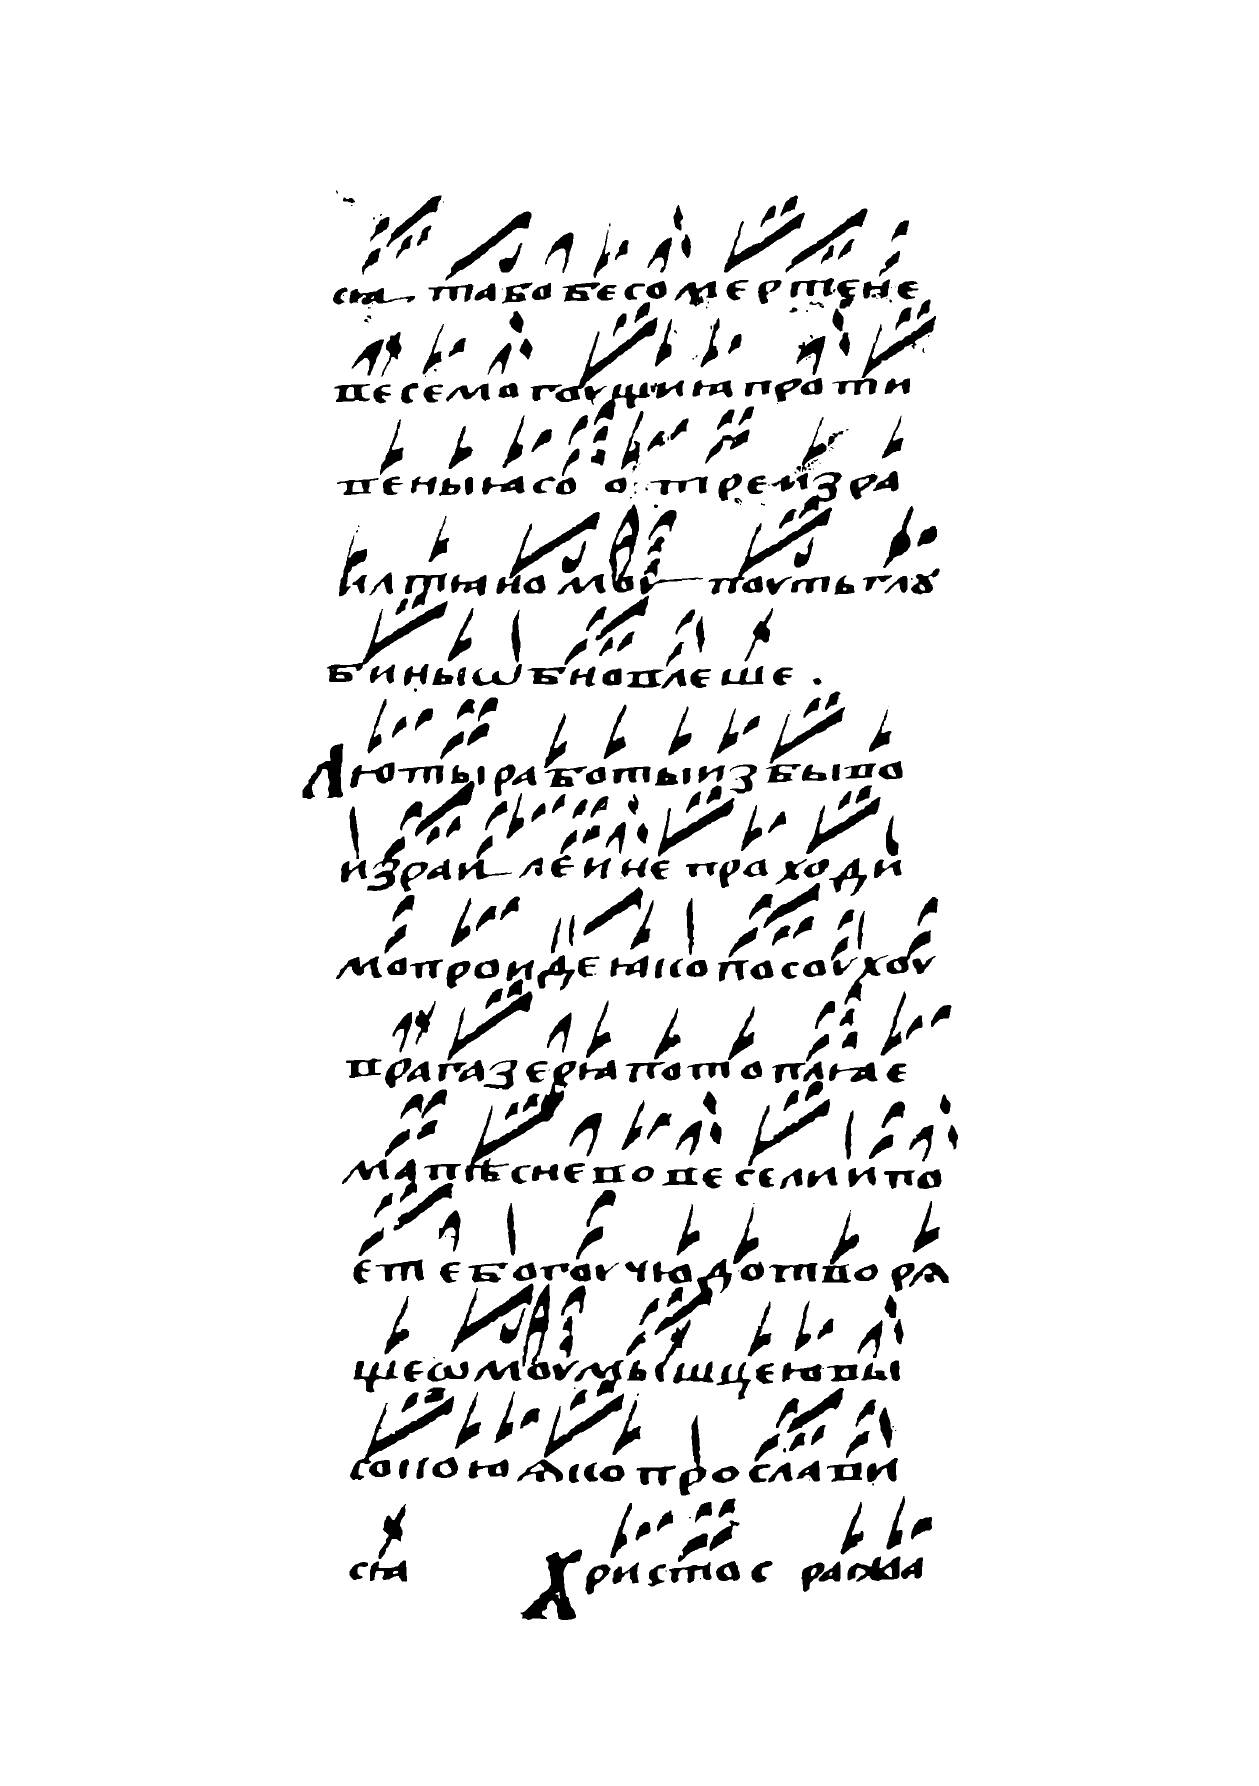 сꙗ твоа бо бесомертене
весемогоущиꙗ проти
веныꙗ со отре изра
илтꙗномоу поутьглѹ
бины ѡбноплеше .
Люты работы избыво
израилеи непроходи
мопроиде ꙗко посоухоу
врага зерꙗ потоплꙗе
ма пѣснево веселии по
ете богоу чюдотворѧ
щеѡмоу мышцею вы
сокою ѧко прослави
сꙗ Христос ража